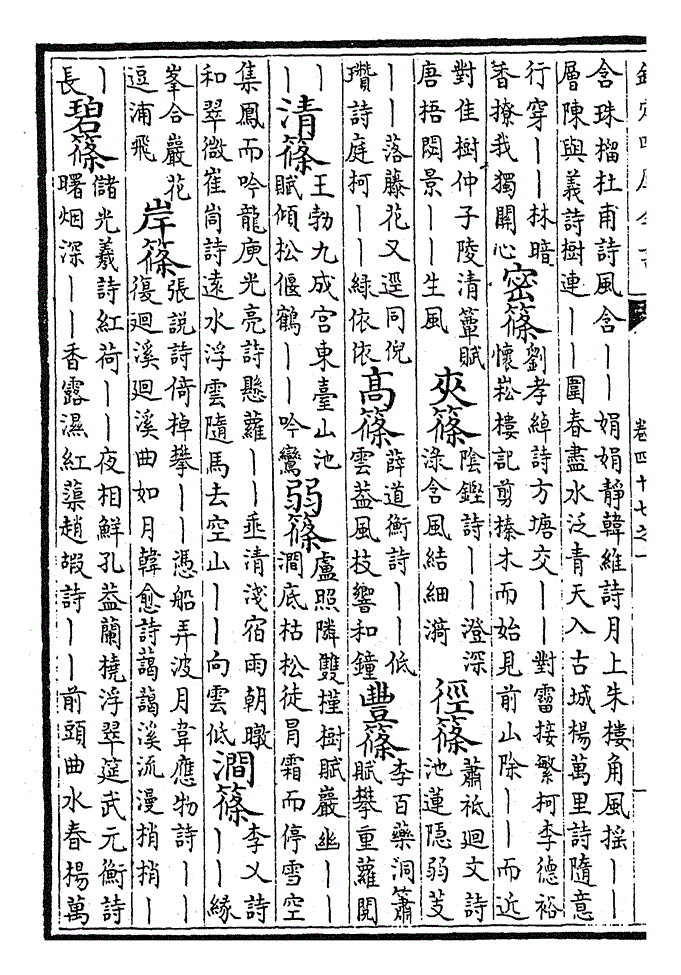 卷四十七之一
含珠榴杜甫詩風含——娟娟靜韓維詩月上朱樓角風揺——
層陳與義詩樹連——圍春盡水泛青天入古城楊萬里詩隨意
行穿——林暗
香撩我獨關心
密篠
劉孝綽詩方塘交——對霤接繁柯李德裕
懷崧樓記剪榛木而始見前山除——而近
對佳樹仲子陵清簟賦
唐梧閟景——生風
夾篠
陰鏗詩——澄深
渌含風結細漪
徑篠
蕭祗廻文詩
池蓮隠弱芰
——落藤花又逕同倪
瓚詩庭柯——綠依依
高篠
薛道衡詩——低
雲葢風枝響和鐘
豐篠
李百藥洞簫
賦攀重蘿閲
——
清篠
王勃九成宮東臺山池
賦傾松偃鶴——吟鸞
弱篠
盧照隣雙槿樹賦巖幽——
澗底枯松徒冒霜而停雪空
集鳳而吟龍庾光亮詩懸蘿——垂清淺宿雨朝暾
和翠微崔峒詩遠水浮雲隨馬去空山——向雲低
澗篠
李乂詩
——縁
峯合巖花
逗浦飛
岸篠
張説詩倚棹攀——憑船弄波月韋應物詩——
復廻溪廻溪曲如月韓愈詩藹藹溪流漫梢梢—
—
長
碧篠
儲光羲詩紅荷——夜相鮮孔葢蘭橈浮翠筵武元衡詩
曙烟深——香露濕紅蕖趙嘏詩——前頭曲水春楊萬